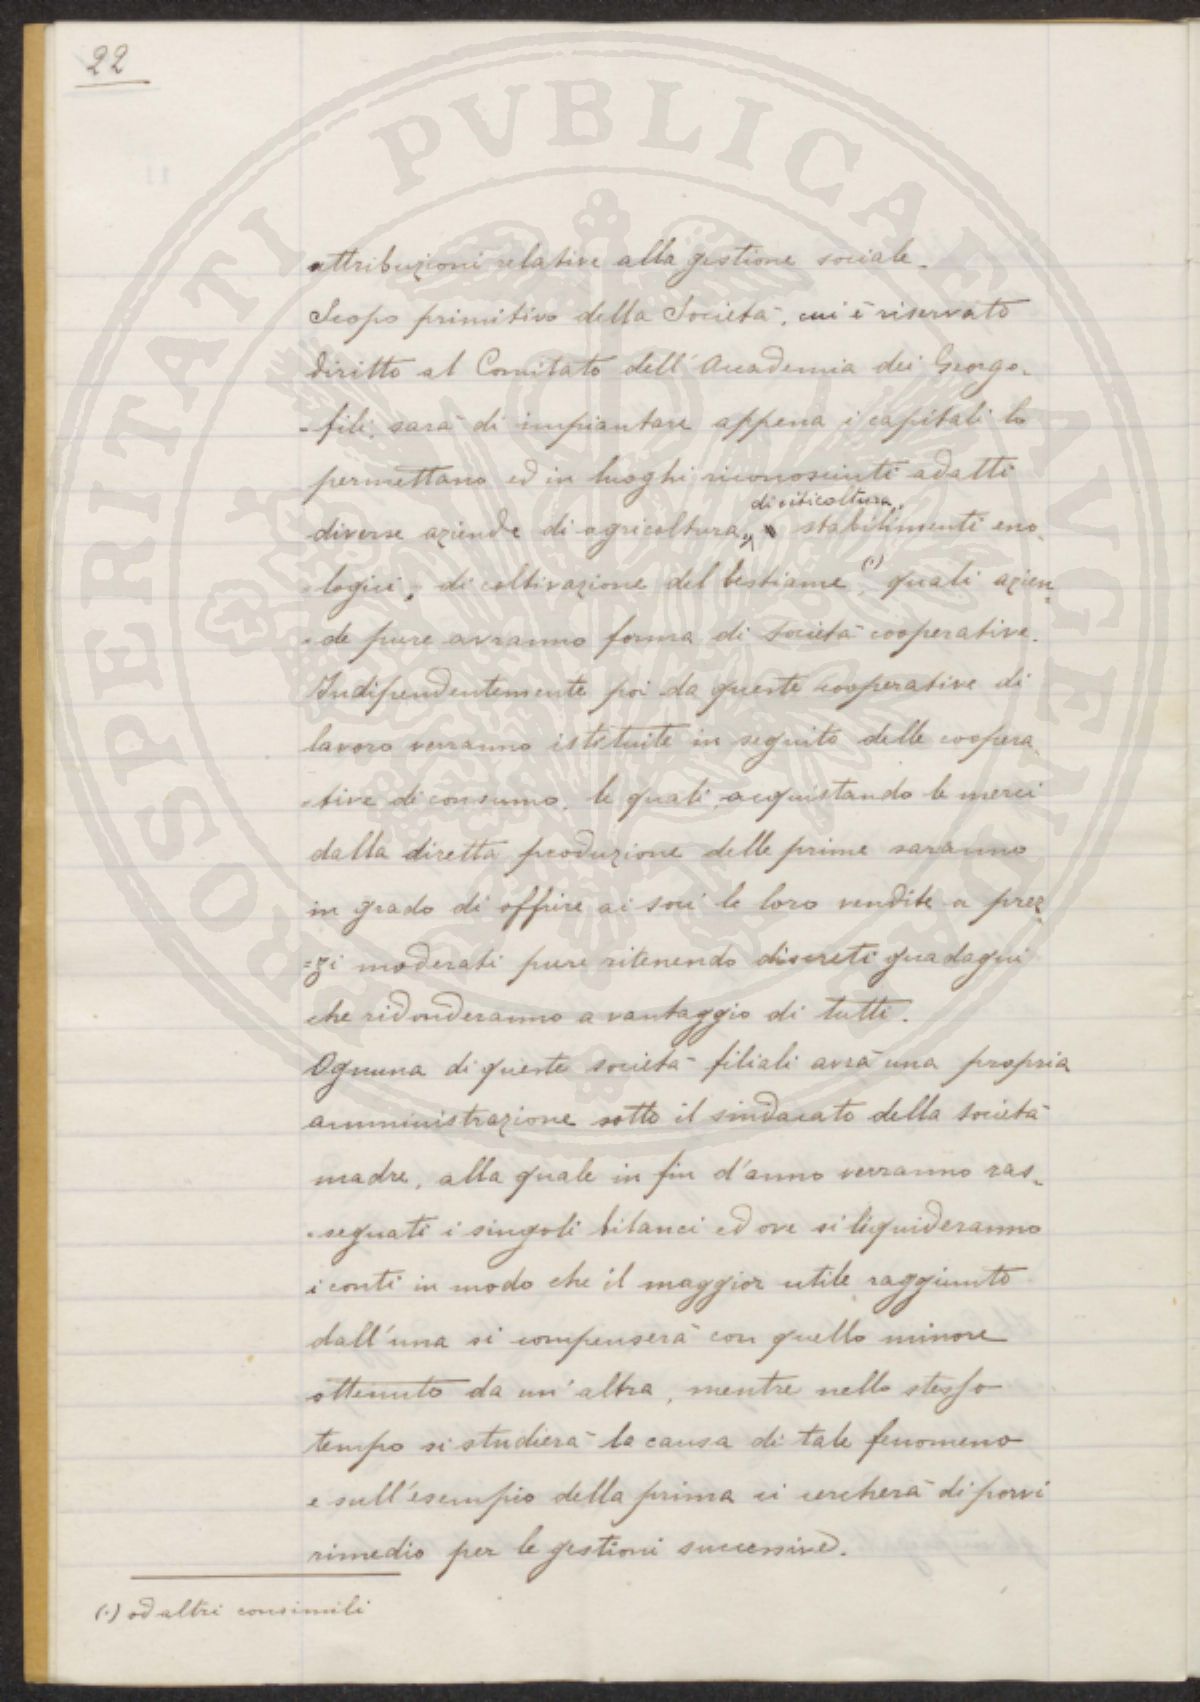 22
PROSPERITATI PVBLICAE AVGENDAE
attribuzioni relative alla gestione sociale.
Scopo primitivo della Società, cui è riservato
diritto al Comitato dell'Accademia dei Georgo-
-fili, sarà di impiantare appena i capitali lo
permettano ed in luoghi riconosciuti adatti
di viticoltura,
diverse aziende di agricoltura, stabilimenti eno-
-logici, di coltivazione del bestiame (1), quali azien-
-de pure avranno forma di società cooperative.
Indipendentemente poi da queste cooperative di
lavoro verranno istituite in seguito delle coopera-
-tive di consumo, le quali, acquistando le merci
dalla diretta produzione delle prime saranno
in grado di offrire ai soci le loro vendite a prez-
=zi moderati pure ritenendo discreti guadagni
che ridonderanno a vantaggio di tutti.
Ognuna di queste società filiali avrà una propria
amministrazione sotto il sindacato della società
madre, alla quale in fin d'anno verranno ras-
-segnati i singoli bilanci ed ove si liquideranno
i conti in modo che il maggior utile raggiunto
dall'una si compenserà con quello minore
ottenuto da un'altra, mentre nello stesso
tempo si studierà la causa di tale fenomeno
e sull'esempio della prima si cercherà di porvi
rimedio per le gestioni successive.
(1) od altri consimili